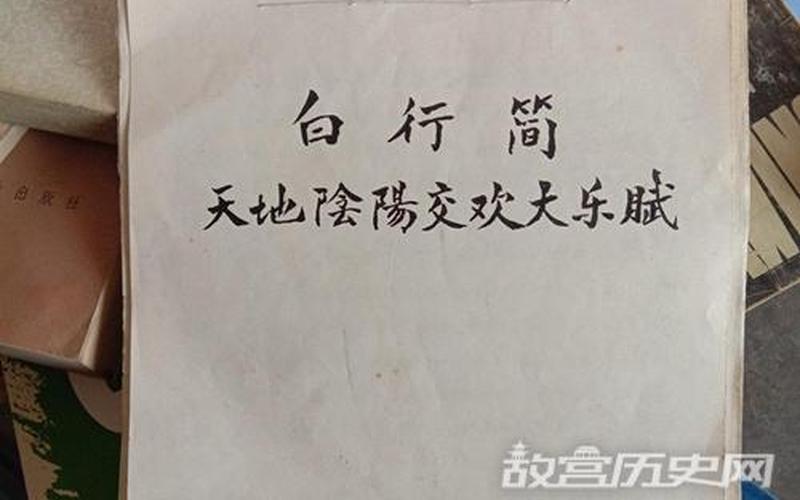 白行简
天地陰陽交欢大乐赋
出版社
故宫历史网